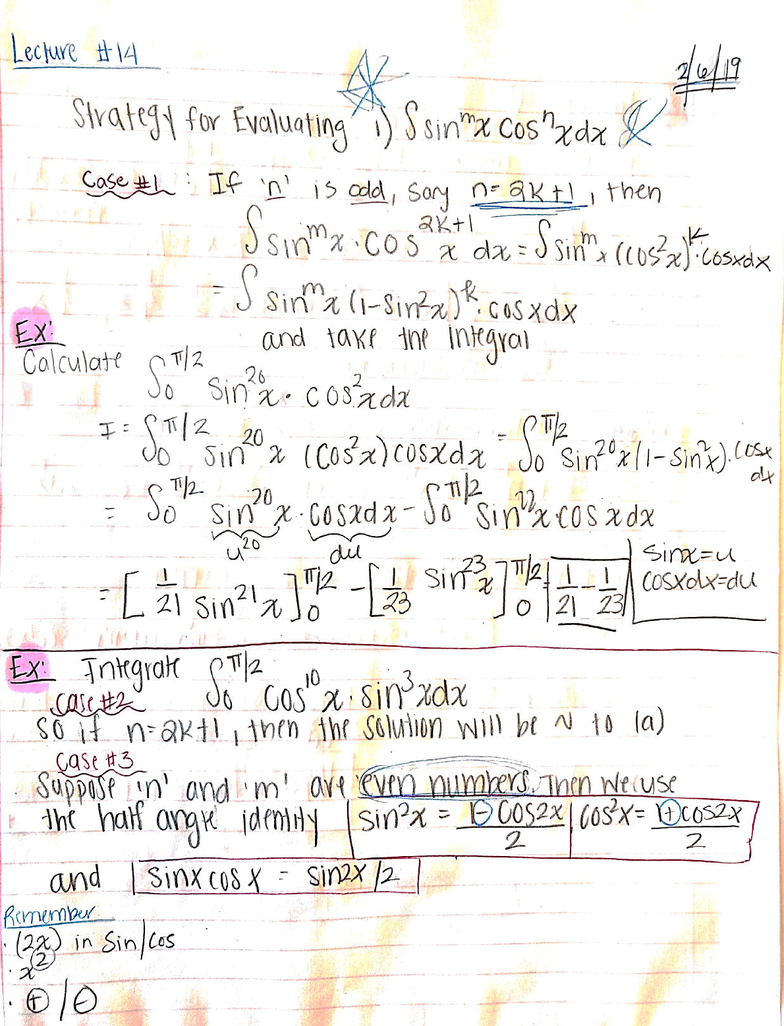 Lecture #14
2/6/19
Strategy for Evaluating i) ∫ sin^m x cos^n x dx
Case #1: If 'n' is odd, say n = 2k+1, then
∫ sin^m x · cos^{2k+1} x dx = ∫ sin^m x (cos²x)^k · cosx dx
= ∫ sin^m x (1-sin²x)^k · cosx dx
and take the integral
Ex:
Calculate ∫_0^{π/2} sin^{20} x · cos²x dx
I = ∫_0^{π/2} sin^{20} x (cos²x) cosx dx = ∫_0^{π/2} sin^{20} x (1-sin²x) · cosx dx
= ∫_0^{π/2} sin^{20} x · cosx dx - ∫_0^{π/2} sin^{22} x cosx dx
u^{20} du
= [1/21 sin^{21} x]_0^{π/2} - [1/23 sin^{23} x]_0^{π/2} = 1/21 - 1/23
sinx = u
cosx dx = du
Ex: Integrate ∫_0^{π/2} cos^{10} x · sin³x dx
Case #2
so if n = 2k+1, then the solution will be ~ to (a)
Case #3
Suppose 'n' and 'm' are even numbers. Then we use
the half angle identity sin²x = (1 - cos2x)/2 cos²x = (1 + cos2x)/2
and sinx cosx = sin2x/2
Remember
· (2x) in sin/cos
· x^②
· ⊕/⊖